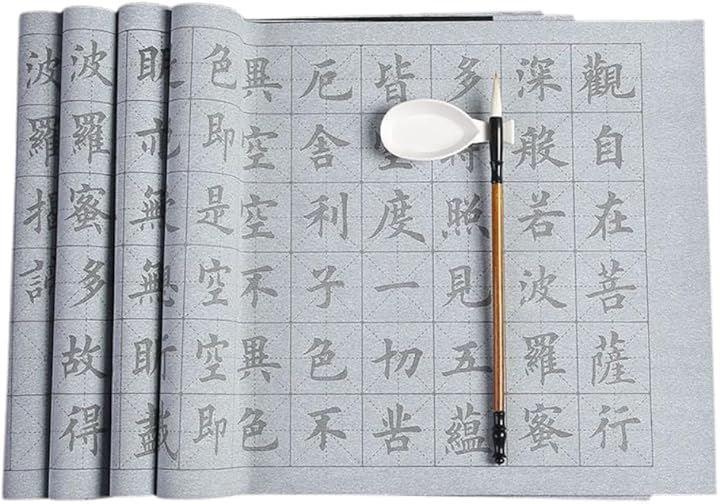 觀自在菩薩行
深般若波羅蜜
多照見五蘊
皆度一切苦
厄舍利子色不
異空空不異色
色即是空空即
無無
波羅蜜多故得
波羅揭